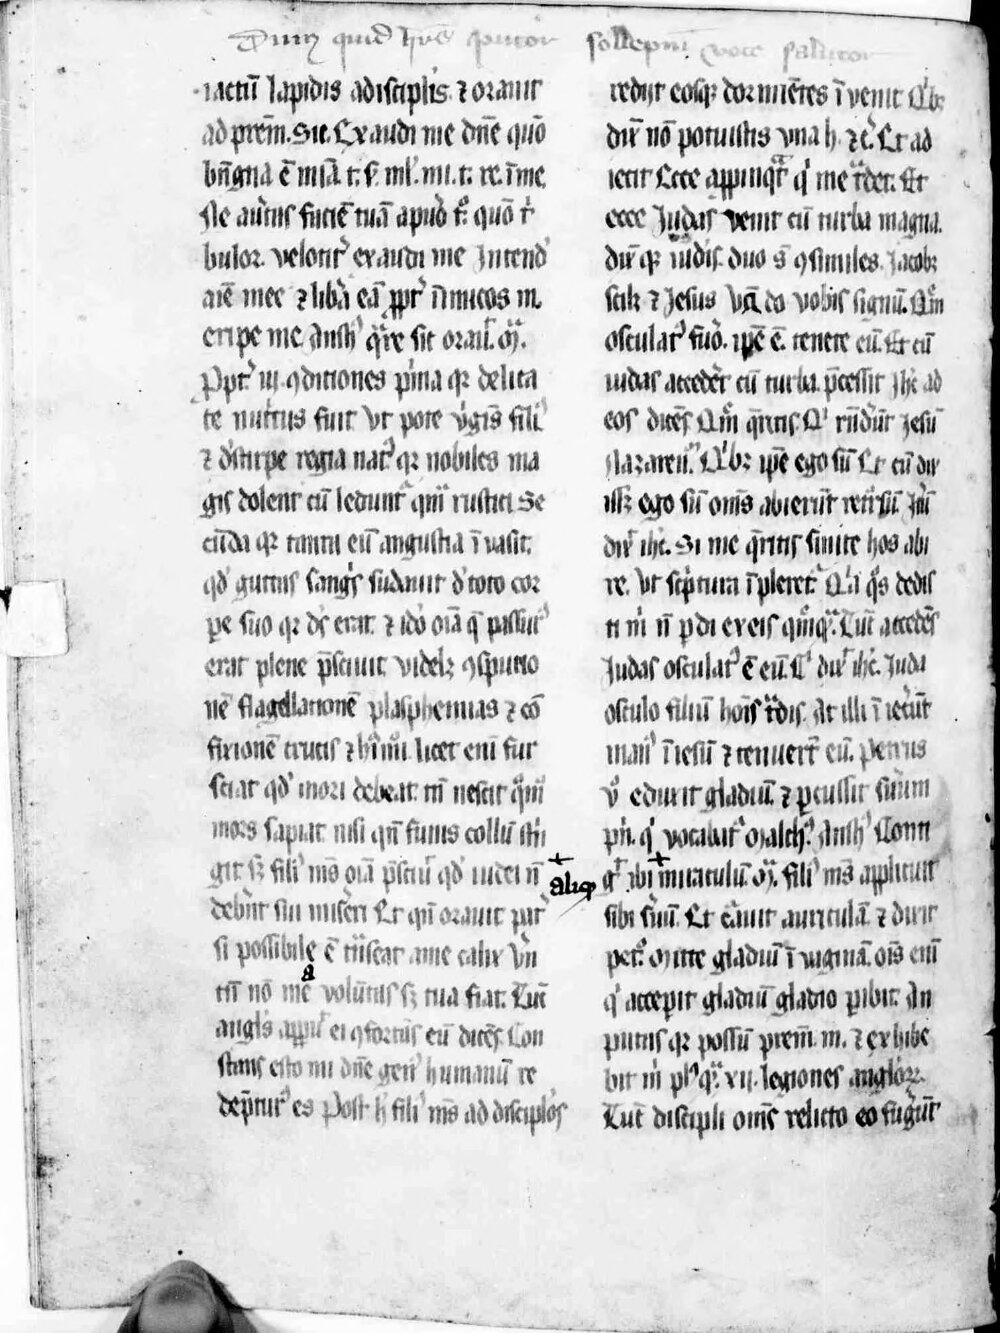 iactū lapidis a disciplis. ⁊ orauit
ad prēm. Sic. Exaudi me dn̄e quō
bn̄gna ē mīa t.
Ne au͛tas faciē tuā a puo t͛. quō t͛
bulor. velocit͛ exaudi me Intend͛
aīe mee ⁊ lib͛a eā ppt͛ inimicos m.
eripe me Ansh͛ q͛re sic orau͛.
Ppt͛ iii. ꝯditiones p͛ma qꝛ delica
te nut͛tus fuit vt pote v͛gīs fili͛
⁊ d͛ stirpe regia nat͛ qꝛ nobiles ma
gis dolent cū ledunt͛ qm̄ rustici Se
cūda qꝛ tanta eū angustia īvasit.
qd͛ guttas sang͛s sudauit d͛ toto cor
pe suo qꝛ d͛s erat. ⁊ idō oīa q̄ passur͛
erat plene p̄sciuit videlꝫ ꝯsputio
nē flagellationē plasphemias ⁊ co
fixionē crucis licet enī fur
sciat qd͛ mori debeat. tn̄ nescit
mors sapiat nisi qn̄ funis collū stri
git sꝫ fili͛ m͛s oīa p̄sciu͛ qd͛ iudei n̄
deb͛nt sui mis͛eri Et qn̄ orauit pat͛
si possibile ē t͛nseat a me calix v͛u
tn̄ nō mea volūtas sꝫ tua fiat. Tūc
angl͛s appu͛ ei ꝯfortās eū dicēs Con
stans esto mi dn̄e gen͛ humanū re
dep̄tur͛ es Post h͛ fili͛ m͛s ad discipl͛os
rediit eosqꝫ dormiētes īvenit
dix͛ nō potuistis vna h. ⁊c͛. Et ad
iecit Ecce appinq͛t q͛ me t͛det. Et
ecce Iudas venit cū turba magna.
dix͛ qꝫ iud͛is. duo s̄ ꝯsimiles. Iacobꝫ
scilꝫ ⁊ Iesus vn̄ do vobis signū. Qm̄
osculat͛ fu͛o. ip̄e ē. tenete eū. Et cū
iudas acced͛et cū turba. p̄cessit Ih͛c ad
eos dicēs Qm̄ q͛ritis. Q͛ rn̄d͛ūt Iesū
Nazarenū. Q͛bꝫ ip̄e ego sū Et cū dix
issꝫ ego sū om̄s abierūt ret͛rsū Itū
dix͛ ih͛c. Si me q͛ritis sinite hos abi
re. vt sc͛ptura īpleret͛. Q͛a q͛s dedis
ti m͛ n̄ p͛di ex eis qm̄q͛. Tūc accedēs
Iudas osculat͛ ē eū. dix͛ ih͛c. Iuda
osculo filiū hoīs t͛dis. At illi īiec͛ūt
man͛ ī iesū ⁊ tenuer͛t eū. Petrus
v͛ eduxit gladiū ⁊ pcussit s͛uum
vocabat͛ Malch͛. Ansh͛ Conti
aliqꝫ
g͛t ibi miraculū M͛. fili͛ m͛s applicuit
sibi s͛uū. Et c͛auit auriculā ⁊ dixit
pet͛. Mitte gladiū ī vaginā. oīs enī
q͛ accepit gladiū gladio pibit. An
putas qꝛ possū prēm. m. ⁊ exhibe
bit m͛ pl͛ q͛. xii. legiones anglōꝝ.
Tūc discipli om̄s relicto eo fug͛ūt